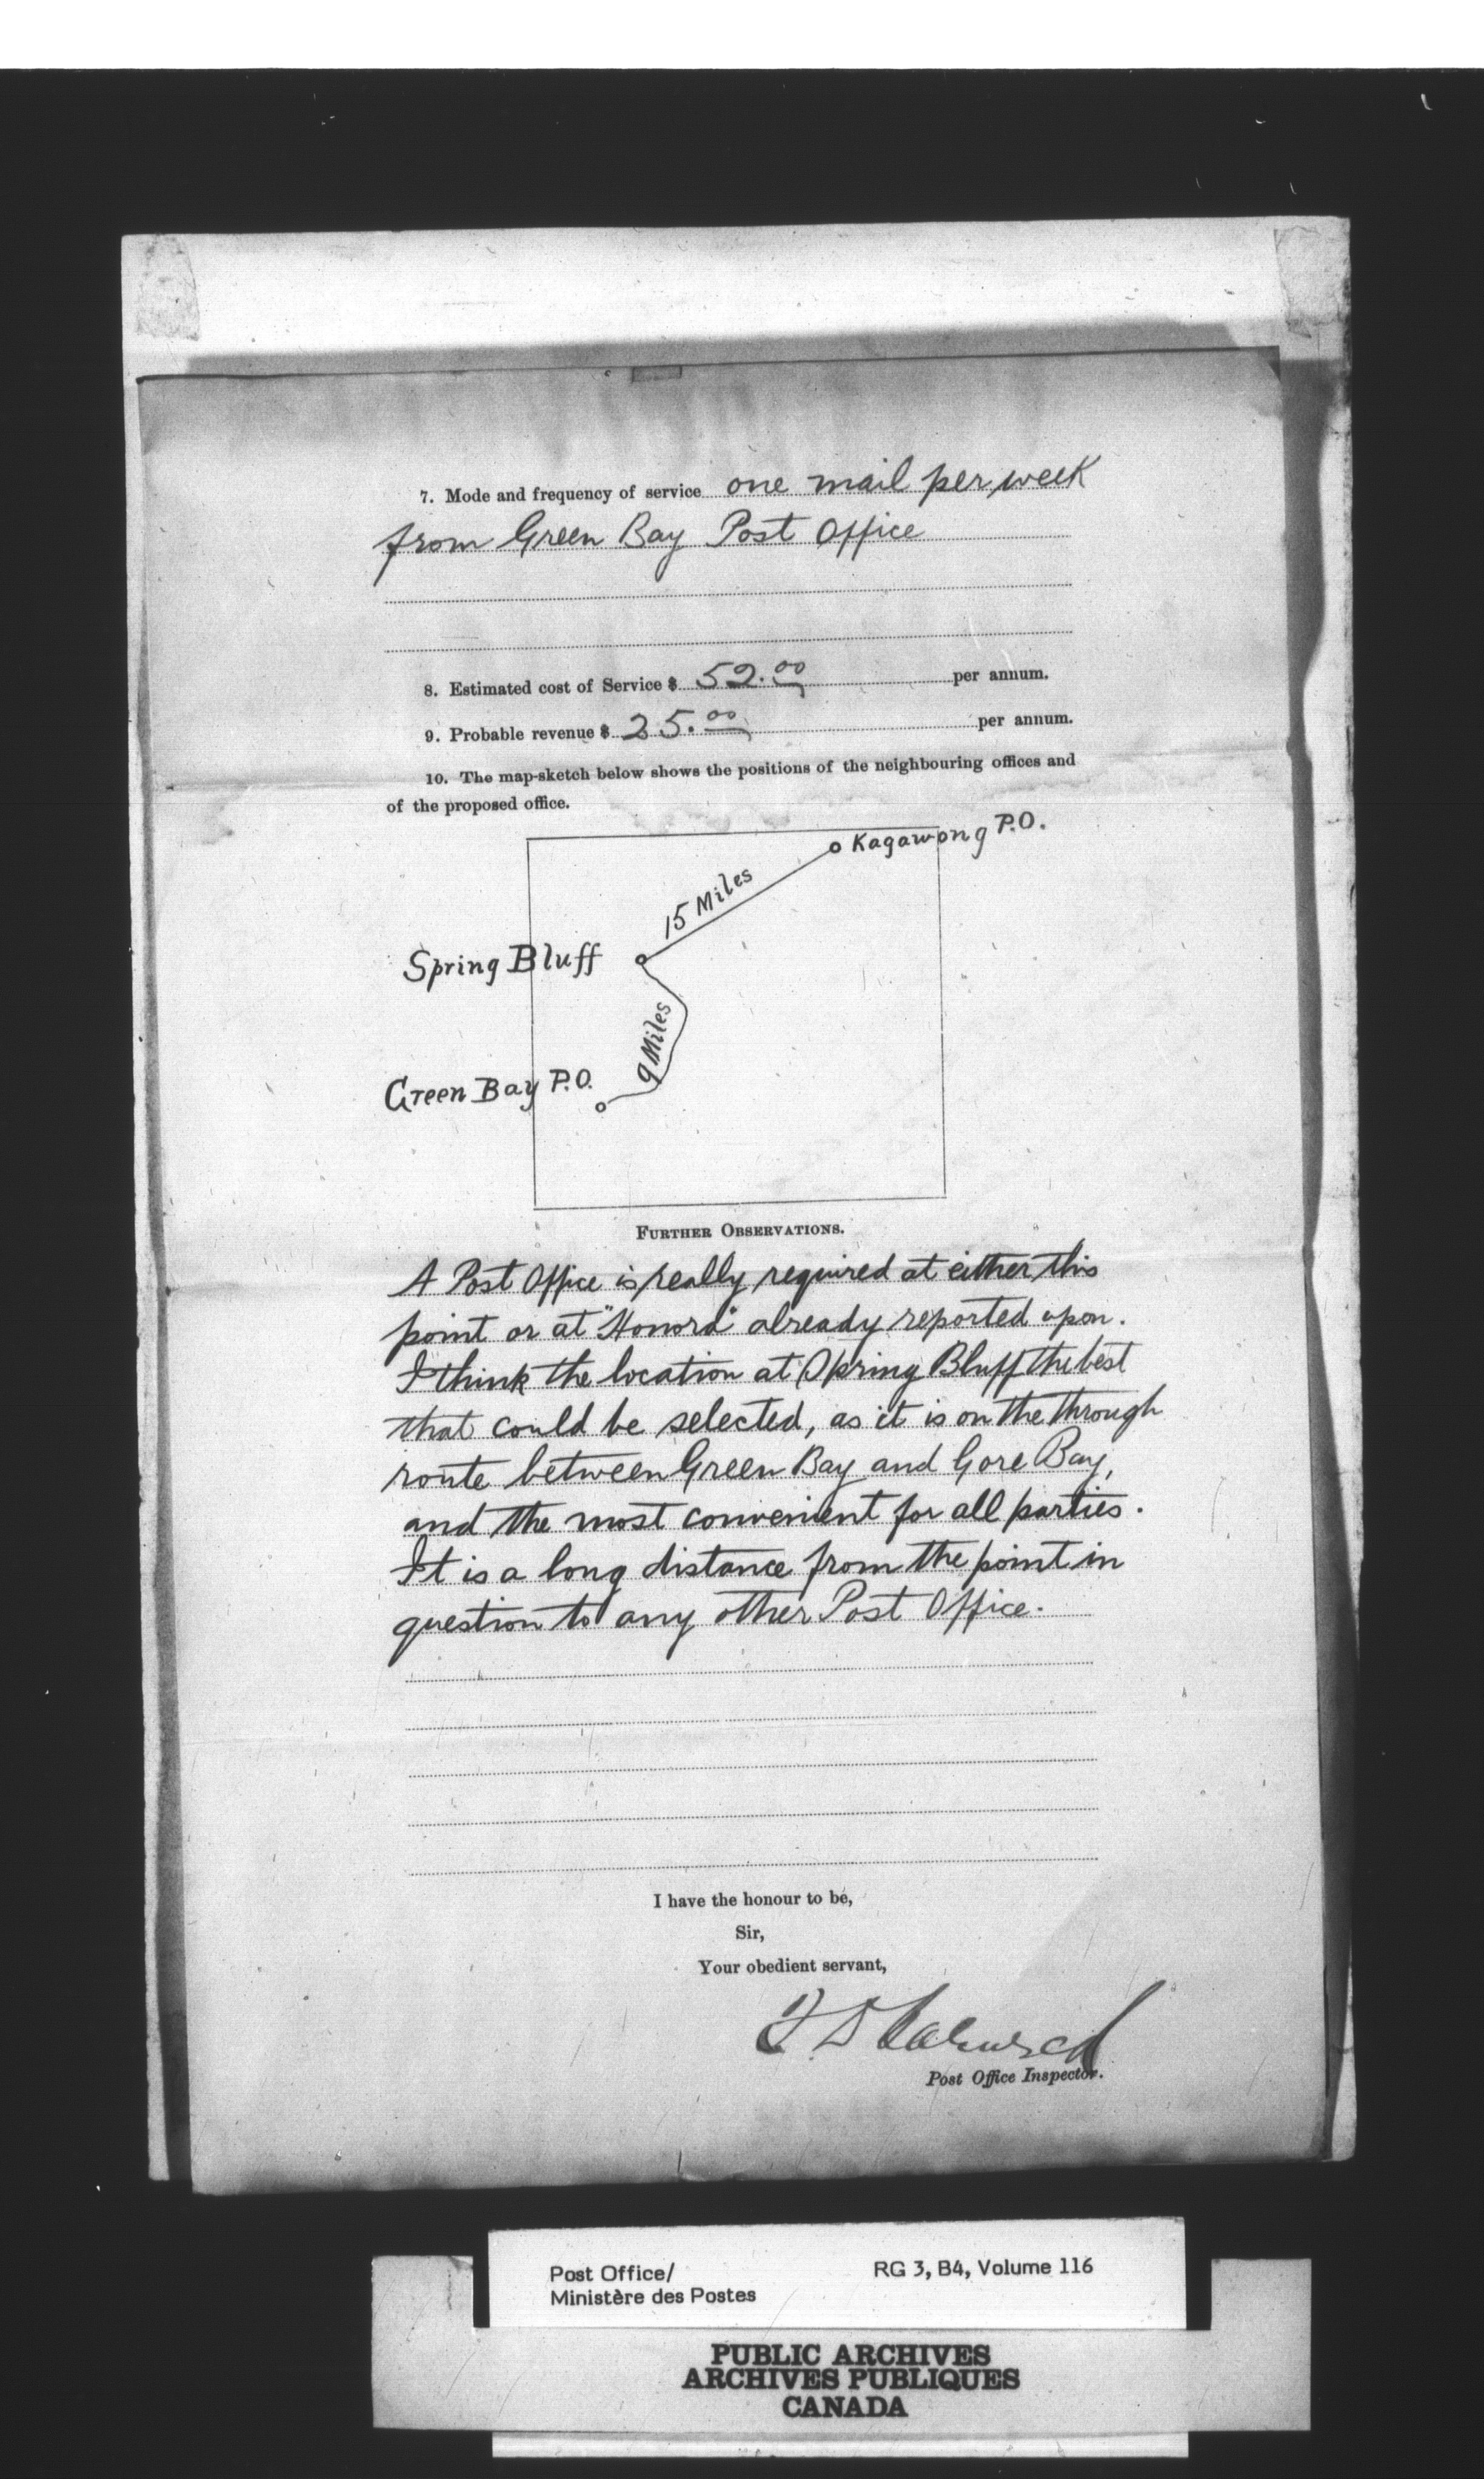 7. Mode and frequency of service one mail per week
from Green Bay Post Office
8. Estimated cost of Service $ 52.00 per annum.
9. Probable revenue $ 25.00 per annum.
10. The map-sketch below shows the positions of the neighbouring offices and
of the proposed office.
Kagawong P.O.
15 Miles
Spring Bluff
9 Miles
Green Bay P.O.
FURTHER OBSERVATIONS.
A Post Office is really required at either this
point or at "Honora" already reported upon.
I think the location at Spring Bluff the best
that could be selected, as it is on the through
route between Green Bay and Gore Bay,
and the most convenient for all parties.
It is a long distance from the point in
question to any other Post Office.
I have the honour to be,
Sir,
Your obedient servant,
Post Office Inspector.
Post Office/
Ministère des Postes
RG 3, B4, Volume 116
PUBLIC ARCHIVES
ARCHIVES PUBLIQUES
CANADA